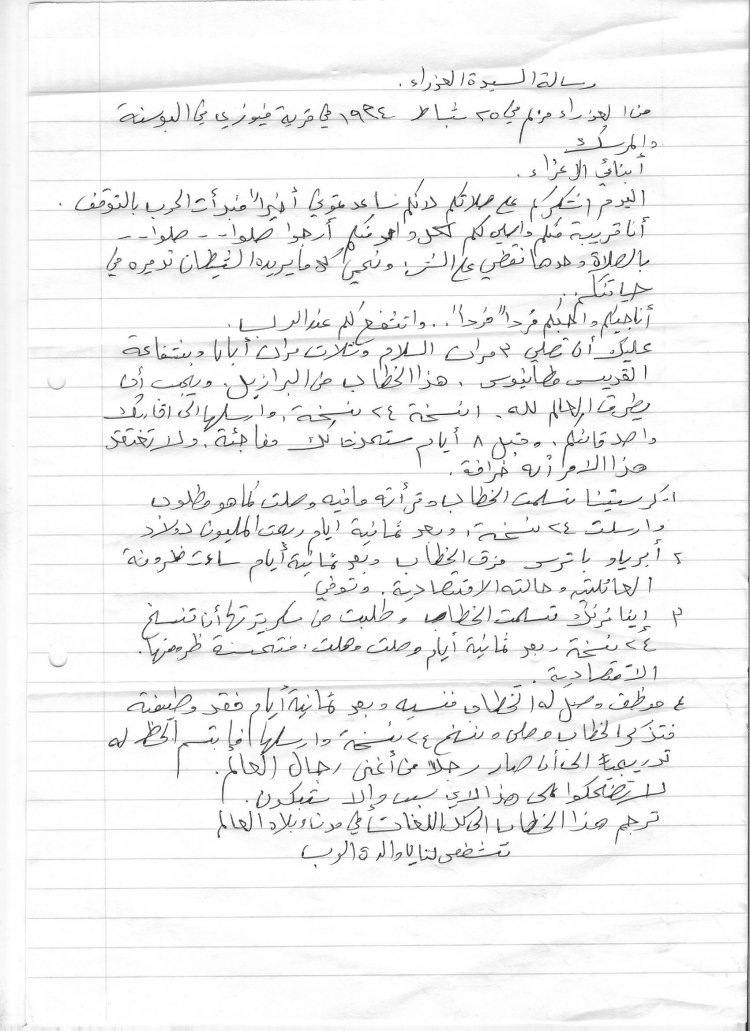 رسالة السيدة العذراء.
من العذراء مريم في ٢٥ شباط ١٩٩٤ في قرية فيوزي في البوسنة
والهرسك
أبنائي الاعزاء.
اليوم اشكركم على صلاتكم لانكم ساعدتموني أخيراً فبدأت الحرب بالتوقف.
أنا قريبة منكم واصلي لكم لكل واحد منكم أرجوا صلوا-- صلوا--
بالصلاة وحدها نقضي على الشر، ونحمي كل ما يريده الشيطان تدميره في
حياتكم..
أناجيكم واحبكم فرداً فرداً.. واتشفع لكم عند الرب.
عليك أن تصلي ٣ مرات السلام وثلاث مرات أبانا وبشفاعة
القديس مطانيوس. هذا الخطاب من البرازيل. ويجب أن
يطرق العالم لله. انسخة ٢٤ نسخة، وارسلها الى اقاربك
واصدقائكم. وقبل ٨ أيام ستحدث لك مفاجئة. ولا تعتقد
هذا الامر أنه خرافة.
١- كرستينا تسلمت الخطاب وقرأته مافيه وصلت كما هو مطلوب
وارسلت ٢٤ نسخة، وبعد ثمانية ايام ربحت المليون دولار
٢ أبرياو باترس مزق الخطاب وبعد ثمانية أيام ساءت ظروفه
العائلية وحالته الاقتصادية. وتوفي
٣ تسلمت الخطاب وطلبت من سكرتيرتها أن تنسخ
٢٤ نسخة وبعد ثمانية أيام وصلت وهلت، فتحسنة ظروفها.
الاقتصادية.
٤ موظف وصل له الخطاب فنسيه وبعد ثمانية أيام فقد وظيفته
فتذكر الخطاب وصلى ونسخ ٢٤ نسخة وارسلها فابتسم الحظ له
تدريجية الى أن صار رجلاً من أغنى رجال العالم.
لا تضحكوا على هذا لاي سبب وإلا ستبكون.
ترجم هذا الخطاب الى كل اللغات في مدن وبلاد العالم
تشفعي لنا يا والدة الرب